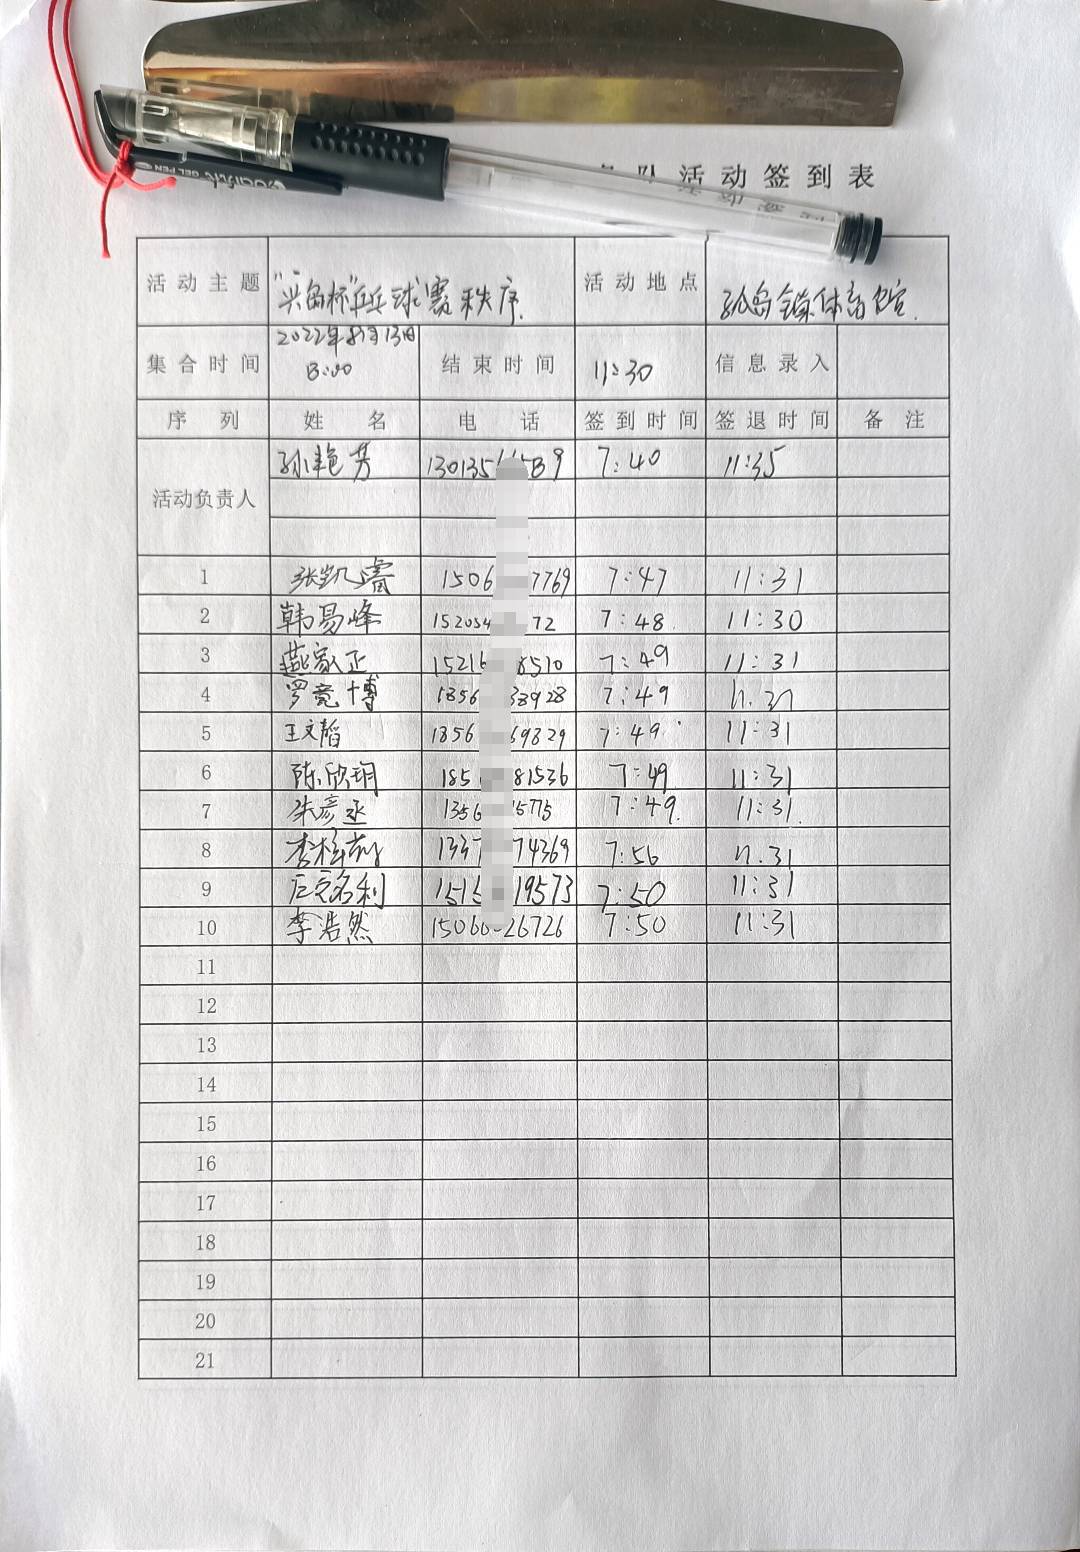 队活动签到表
活动主题 乒乓球赛秩序. 活动地点 孤岛镇体育
集合时间 2022年8月13日 8:00 结束时间 11:30 信息录入
序列 姓名 电话 签到时间 签退时间 备注
活动负责人 孙艳芳 130135 39 7:40 11:35
1 张凯睿 1506 7769 7:47 11:31
2 韩易峰 152054 72 7:48 11:30
3 燕家正 1521 8510 7:49 11:31
4 罗竞博 1856 38928 7:49 11.31
5 王文韬 1856 69829 7:49 11:31
6 陈欣玥 185 81536 7:49 11:31
7 朱彦丞 1356 5775 7:49 11:31
8 李 1337 74369 7:56 11.31
9 名利 1515 19573 7:50 11:31
10 李浩然 15060 26726 7:50 11:31
11
12
13
14
15
16
17
18
19
20
21